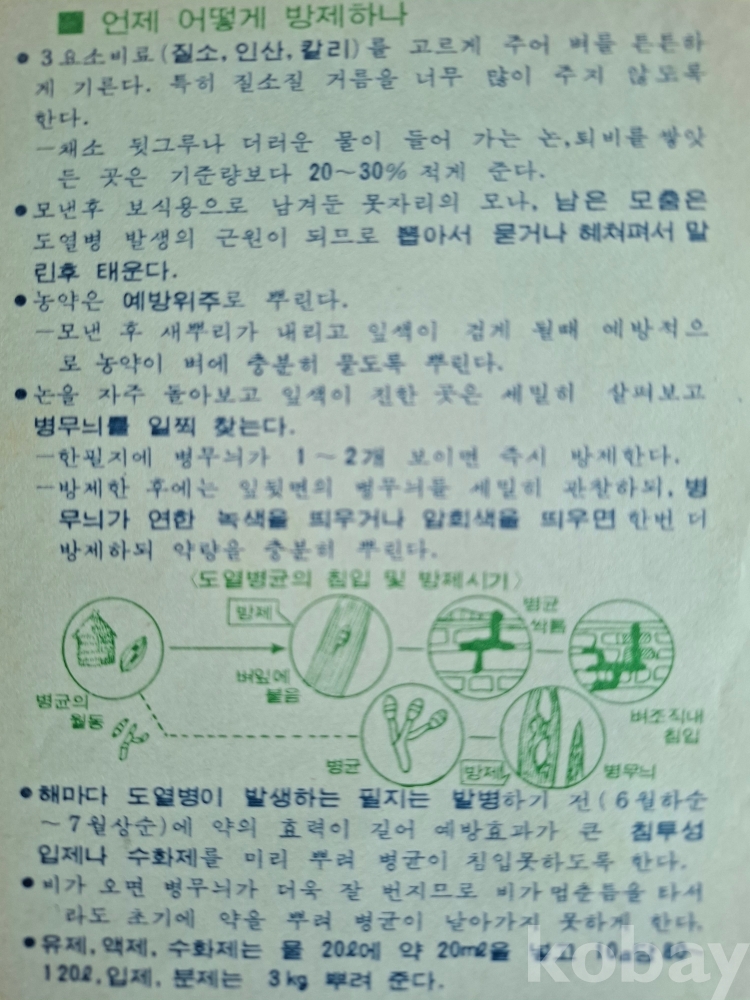 ■ 언제 어떻게 방제하나
● 3요소비료(질소, 인산, 칼리)를 고르게 주어 벼를 튼튼하
게 기른다. 특히 질소질 거름을 너무 많이 주지 않도록
한다.
―채소 뒷그루나 더러운 물이 들어 가는 논, 퇴비를 쌓앗
든 곳은 기준량보다 20~30% 적게 준다.
● 모낸후 보식용으로 남겨둔 못자리의 모나, 남은 모춤은
도열병 발생의 근원이 되므로 뽑아서 묻거나 헤쳐펴서 말
린후 태운다.
● 농약은 예방위주로 뿌린다.
―모낸 후 새뿌리가 내리고 잎색이 검게 될때 예방적으
로 농약이 벼에 충분히 묻도록 뿌린다.
● 논을 자주 돌아보고 잎색이 진한 곳은 세밀히 살펴보고
병무늬를 일찍 찾는다.
―한필지에 병무늬가 1~2개 보이면 즉시 방제한다.
―방제한 후에는 잎뒷면의 병무늬를 세밀히 관찰하되, 병
무늬가 연한 녹색을 띄우거나 암회색을 띄우면 한번 더
방제하되 약량을 충분히 뿌린다.
〈도열병균의 침입 및 방제시기〉
방제
병균
싹틈
벼잎에
붙음
병균의
월동
벼조직내
침입
병균
방제
병무늬
● 해마다 도열병이 발생하는 필지는 발병하기 전(6월하순
~7월상순)에 약의 효력이 길어 예방효과가 큰 침투성
입제나 수화제를 미리 뿌려 병균이 침입못하도록 한다.
● 비가 오면 병무늬가 더욱 잘 번지므로 비가멈춘틈을 타서
라도 초기에 약을 뿌려 병균이 날아가지 못하게 한다.
● 유제, 액제, 수화제는 물 20ℓ에 약 20mℓ을 넣고 10a당
120ℓ, 입제, 분제는 3kg 뿌려 준다.
kobay